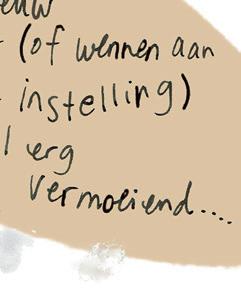 (of wennen aan
instelling)
erg
vermoeiend....